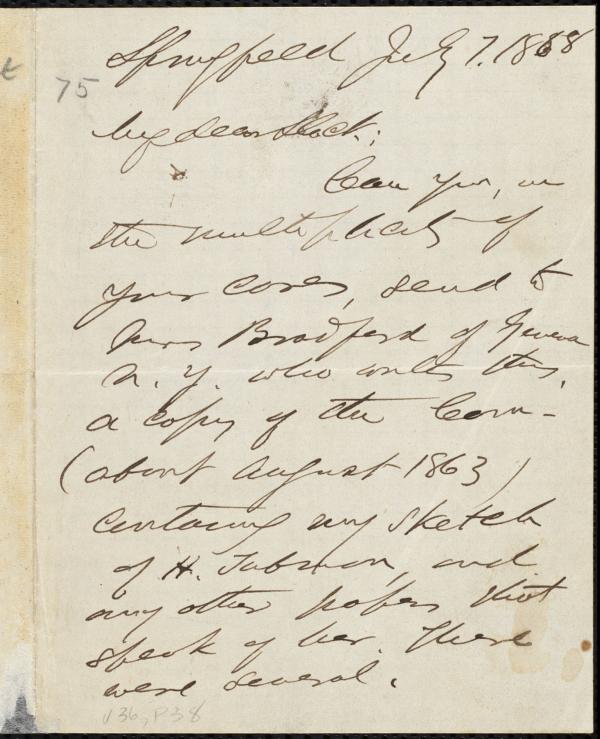 Springfield July 7. 1868
75
My dear Slack;
Can you, in
the multiplicity of
your cares, send to
Mrs Bradford of Geneva
N. Y. who writes this,
a copy of the Com-
(about August 1863)
containing my sketch
of H. Tubman, and
any other papers that
speak of her. There
were several.
v36, P38